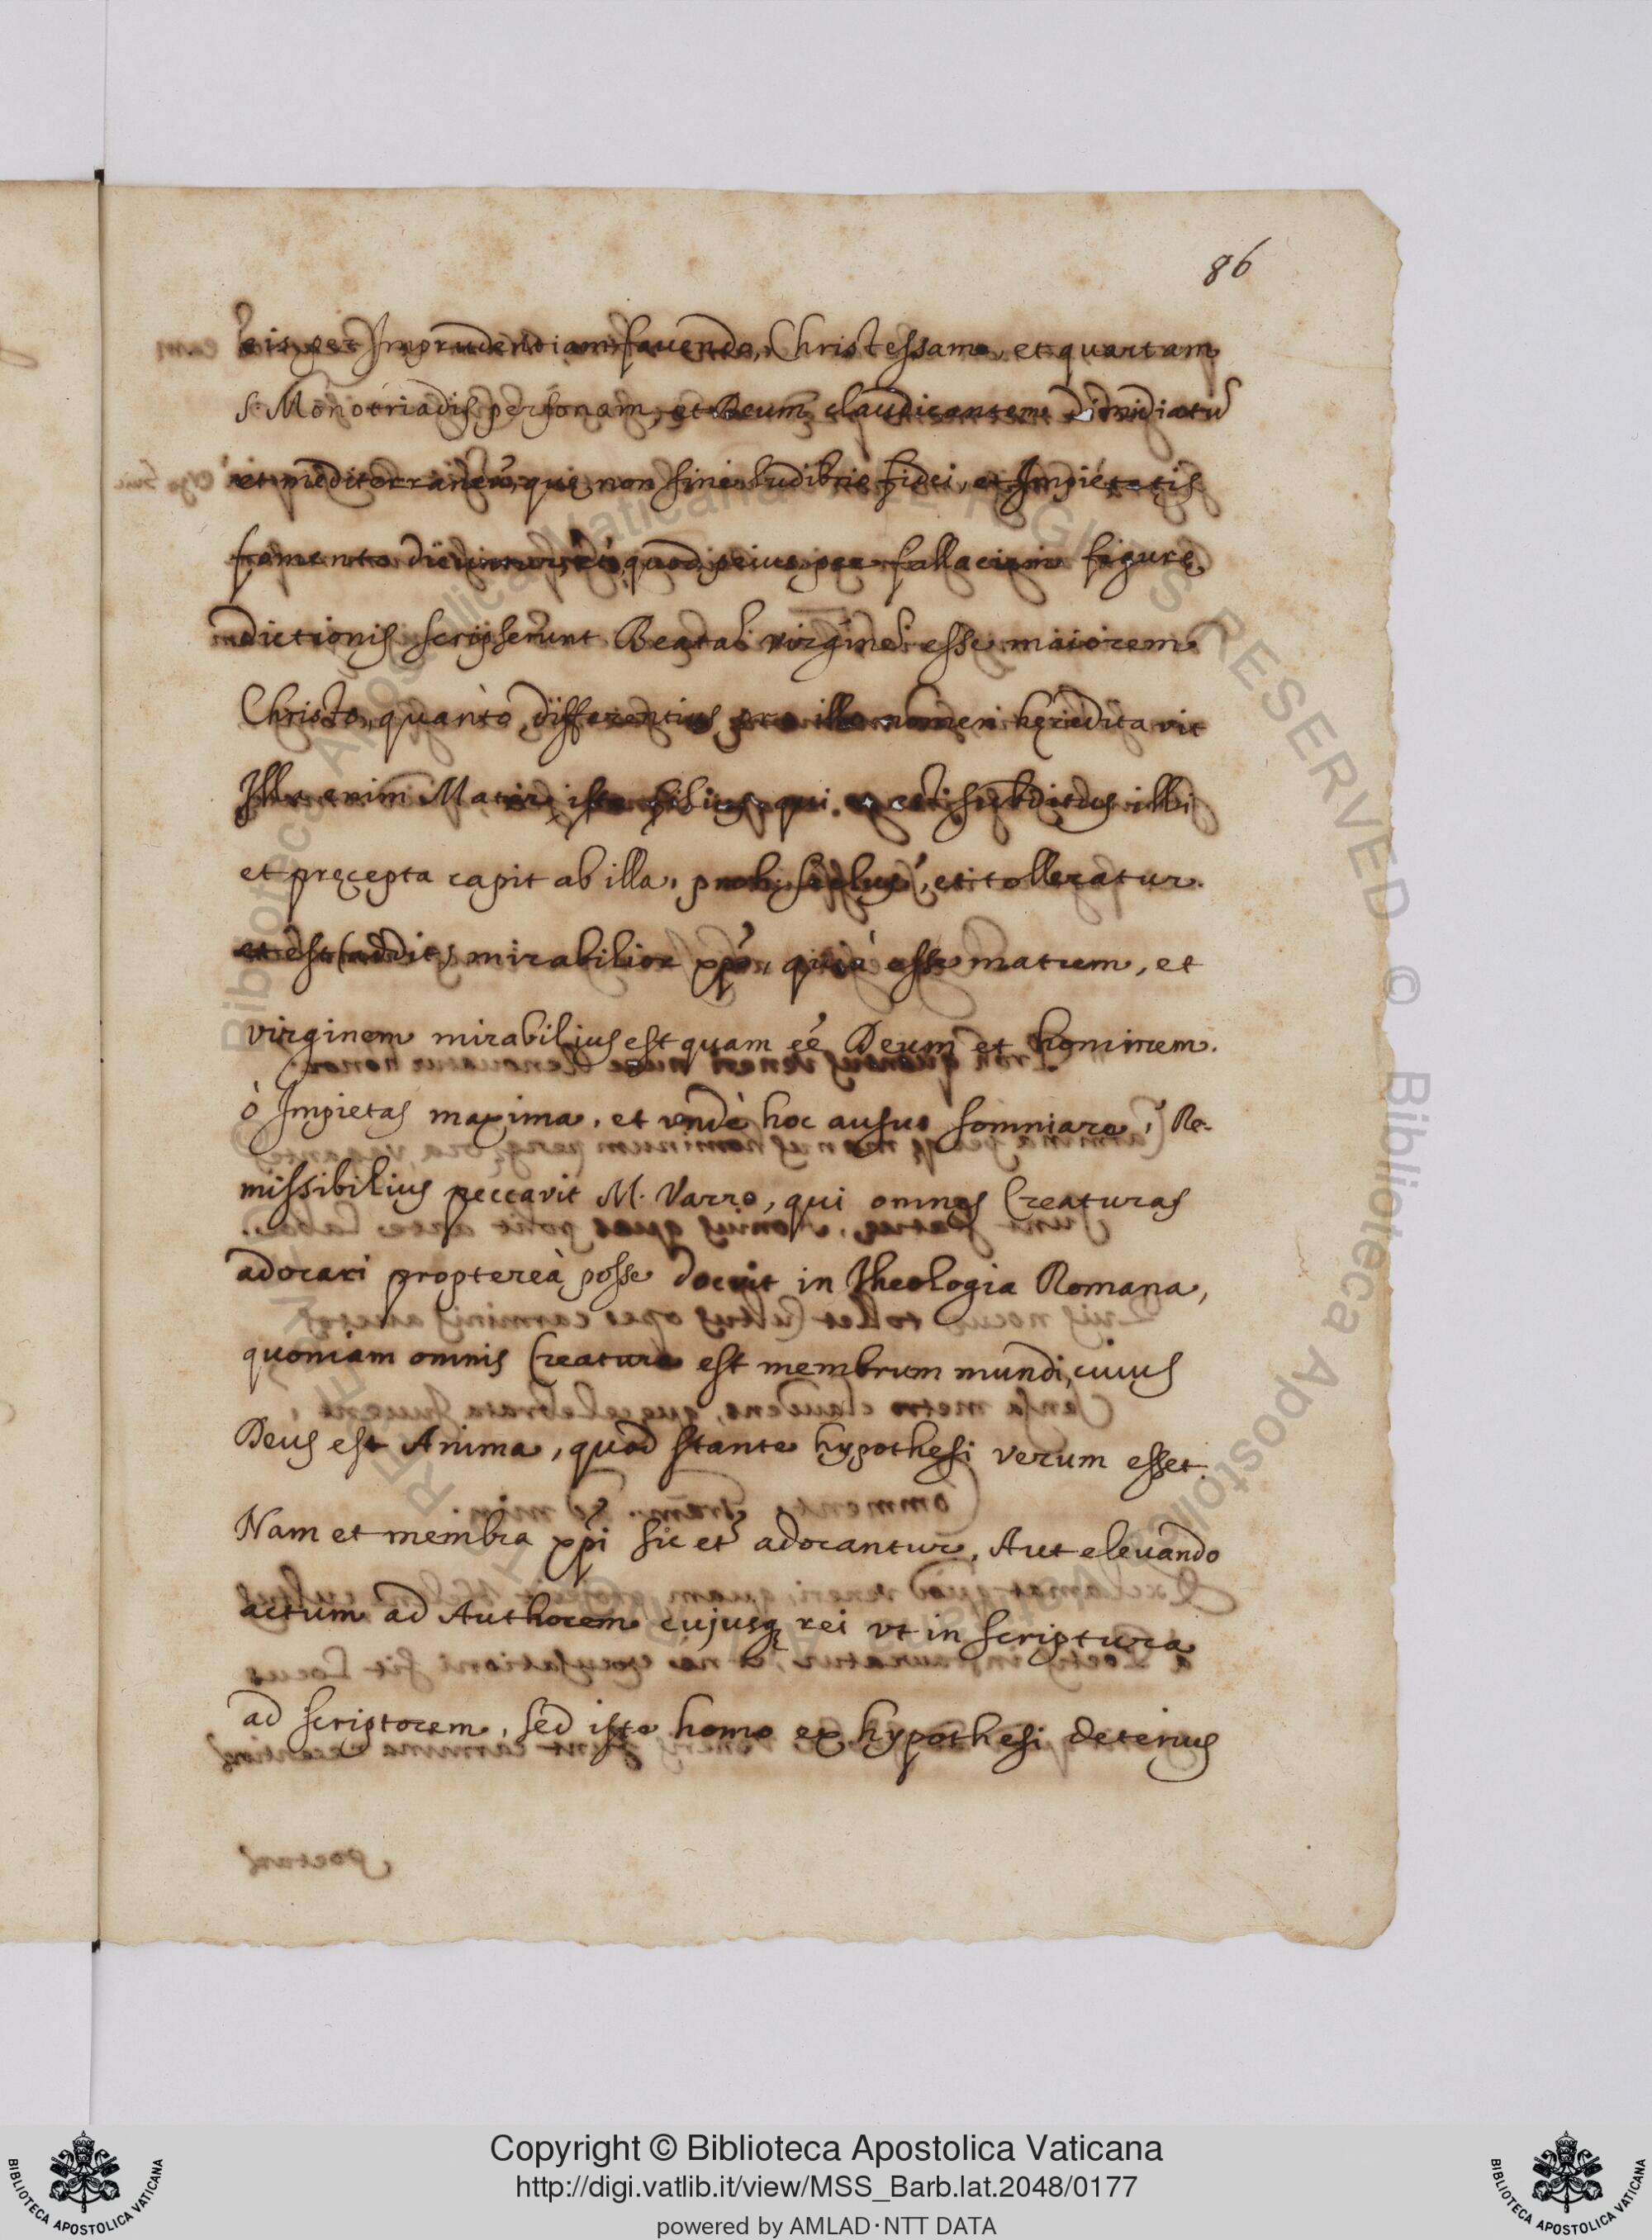 86
eis per Imprudentiam favendo, Christessam, et quartam
S. Monotriadis personam, et Deum claudicantem dimidiatũ
et mediterraneũ, quę non sine ludibrio fidei, et Impietatis
fomento dicuntur, quod peius per fallaciam figurę
dictionis scripserunt Beatam virginem esse maiorem
Christo, quantò differentius prę illo nomen hęredita vit
Illa enim Mater, iste filius, qui est subditus illi
et pręcepta capit ab illa, proh scelus, et tolleratur.
et est (addit) mirabilior xpõ, quià esse matrem, et
virginem mirabilius est quam eẽ Deum et hominem.
ò Impietas maxima, et vndè hoc ausus somniare? Re-
missibilius peccavit M. Varro, qui omnes Creaturas
adorari proptereà posse docuit in Theologia Romana,
quoniam omnis Creatura est membrum mundi, cuius
Deus est Anima, quod stante hypothesi verum esset.
Nam et membra xpĩ sic et adorantur, Aut elevando
actum ad Authorem cujusq rei vt in scriptura
ad scriptorem, sed iste homo ex hypothesi deterius
Copyright © Biblioteca Apostolica Vaticana
http://digi.vatlib.it/view/MSS_Barb.lat.2048/0177
powered by AMLAD·NTT DATA
BIBLIOTECA APOSTOLICA VATICANA
BIBLIOTECA APOSTOLICA VATICANA